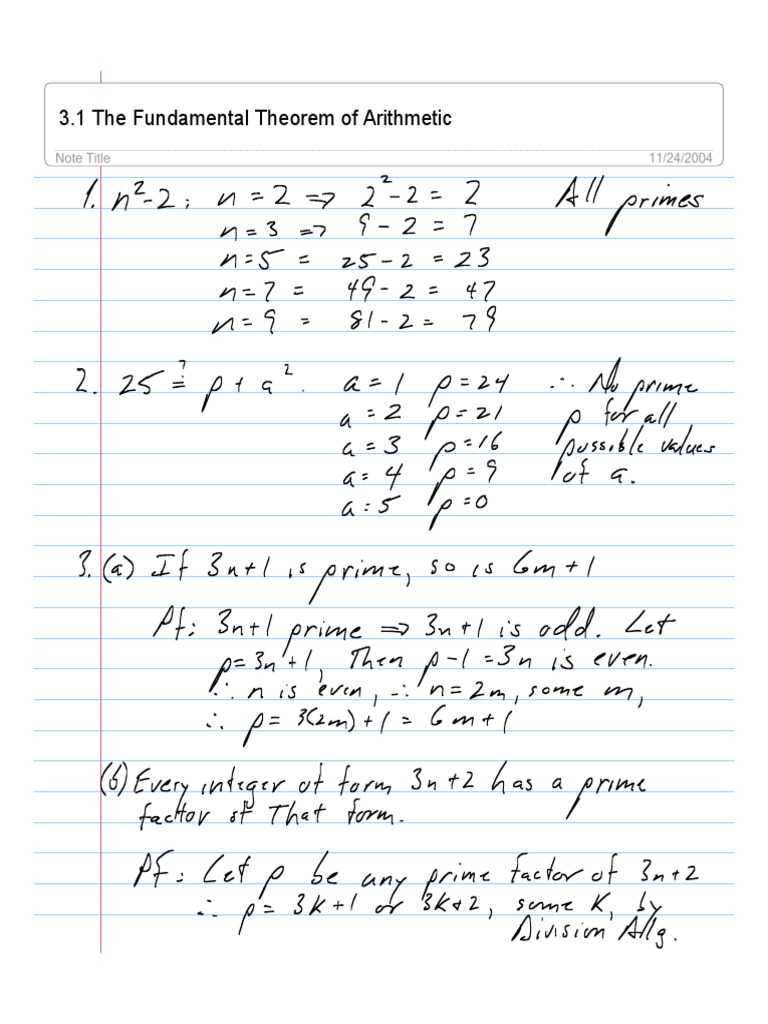 3.1 The Fundamental Theorem of Arithmetic
Note Title 11/24/2004
1. n²-2: n = 2 ⇒ 2²-2 = 2 All primes
n = 3 ⇒ 9 - 2 = 7
n = 5 = 25 - 2 = 23
n = 7 = 49 - 2 = 47
n = 9 = 81 - 2 = 79
2. 25 ≟ p + a². a = 1 p = 24 ∴ No prime
a = 2 p = 21 p for all
a = 3 p = 16 possible values
a = 4 p = 9 of a.
a = 5 p = 0
3. (a) If 3n+1 is prime, so is 6m+1
Pf: 3n+1 prime ⇒ 3n+1 is odd. Let
p = 3n+1, Then p-1 = 3n is even.
∴ n is even, ∴ n = 2m, some m,
∴ p = 3(2m)+1 = 6m+1
(b) Every integer of form 3n+2 has a prime
factor of That form.
Pf: Let p be any prime factor of 3n+2
∴ p = 3k+1 or 3k+2, some K, by
Division Allg.